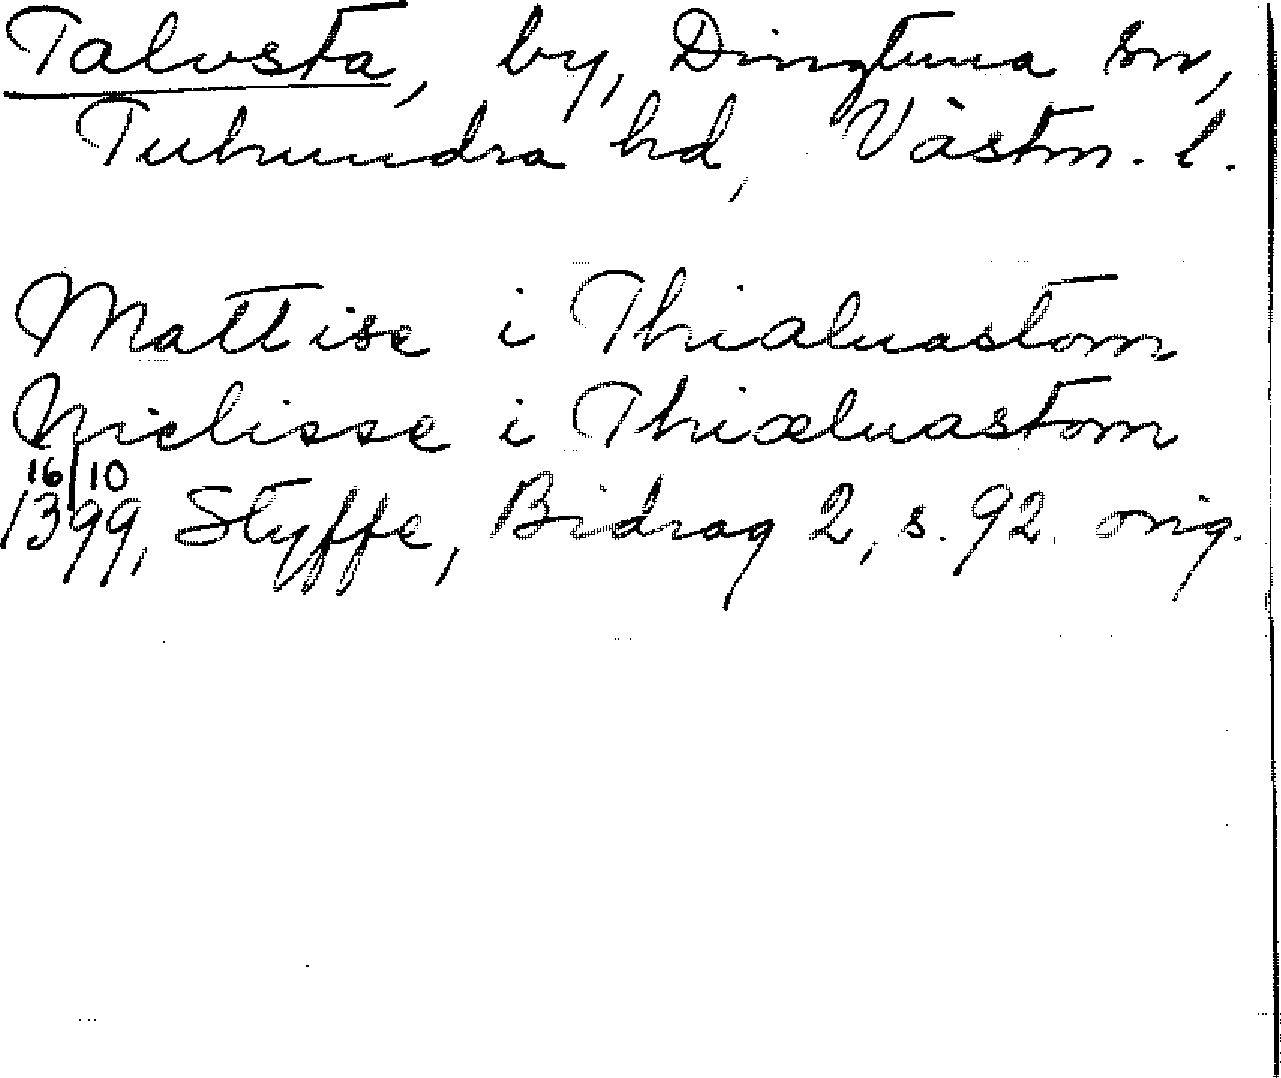 Talvsta, by, Dingtuna sn,
Tuhundra hd, Västm. l.
Mattise i Thialuastom
Niclisse i Thiæluastom
16/10
1399, Styffe, Bidrag 2, s. 92. orig.